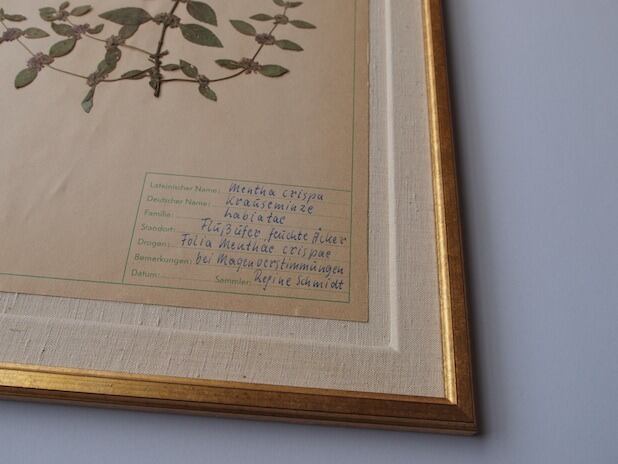 Lateinischer Name: Mentha crispa
Deutscher Name: Krauseminze
Familie: Labiatae
Standort: Flußufer, feuchte Äcker
Drogen: Folia Menthae crispae
Bemerkungen: bei Magenverstimmungen
Datum: Sammler: Regine Schmidt